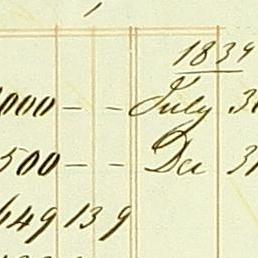 1839
000 - - July 3
500 - - Dec 31
649 13 9